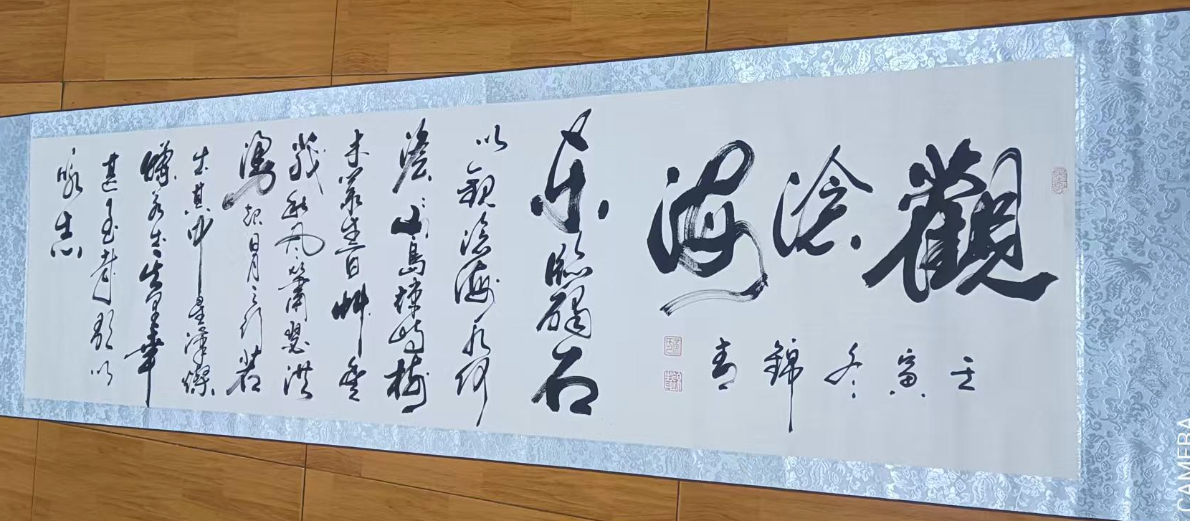 觀滄海
壬寅冬錦
东臨碣石
以觀滄海水何
澹澹山島竦峙樹
木叢生百艸豐
茂秋風蕭瑟洪
起日月之行若
出其中星漢燦
爛若出其里幸
甚至哉歌以
詠志
CAMERA